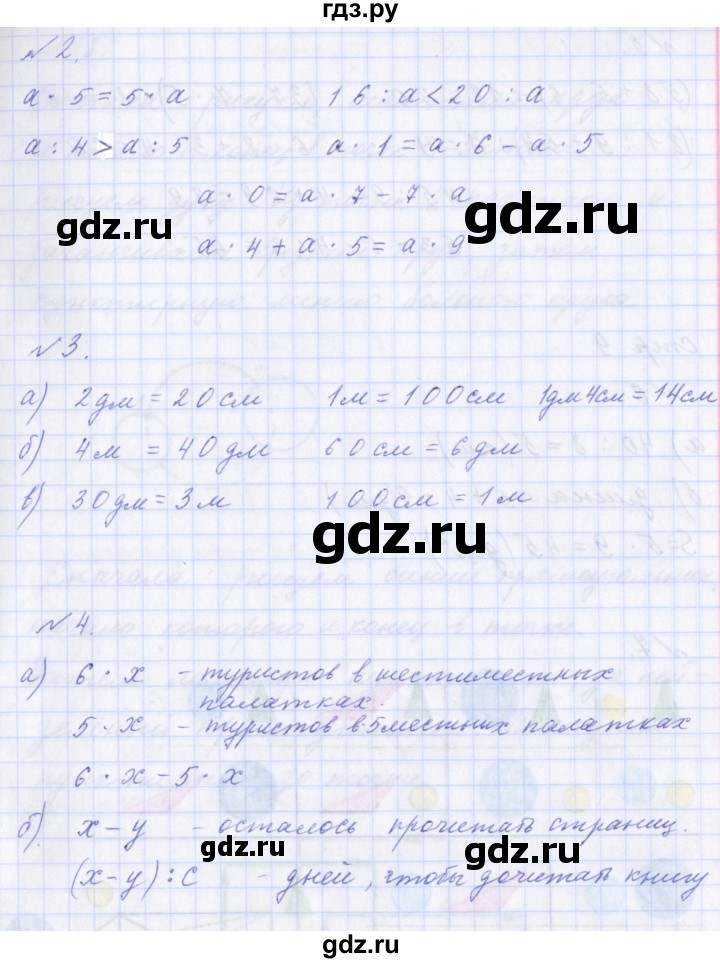 гдз.ру
№2.
a · 5 = 5 · a 16 : a < 20 : a
a : 4 > a : 5 a · 1 = a · 6 - a · 5
a · 0 = a · 7 - 7 · a
gdz.ru gdz.ru
a · 4 + a · 5 = a · 9
№3.
а) 2дм = 20см 1м = 100см 1дм4см = 14см
б) 4м = 40дм 60см = 6дм
в) 30дм = 3м 100см = 1м
gdz.ru
№4.
а) 6 · x - туристов в шестиместных
палатках.
5 · x - туристов в 5местных палатках
6 · x - 5 · x
б) x - y - осталось прочитать страниц.
gdz.ru gdz.ru
(x - y) : c - дней, чтобы дочитать книгу
gdz.ru